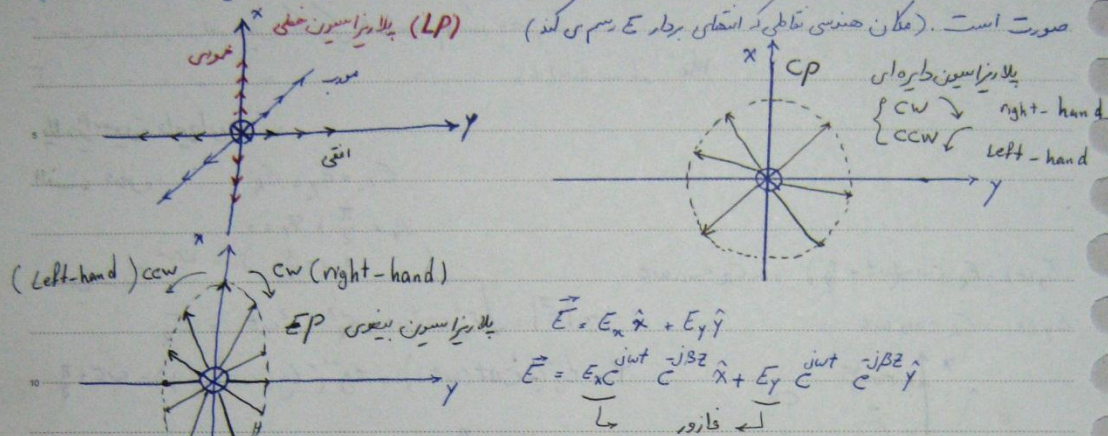 صورت است. (مکان هندسی نقاطی که انتهای بردار E رسم می کند)
پلاریزاسیون خطی (LP)
x
عمودی
مورب
افقی
y
5
x
CP
پلاریزاسیون دایره ای
CW right-hand
CCW Left-hand
y
x
(Left-hand) CCW
CW (right-hand)
EP پلاریزاسیون بیضوی
y
10
E⃗ = Eₓ x̂ + E_y ŷ
E⃗ = Eₓ e^{jωt} e^{-jβz} x̂ + E_y e^{jωt} e^{-jβz} ŷ
فازور